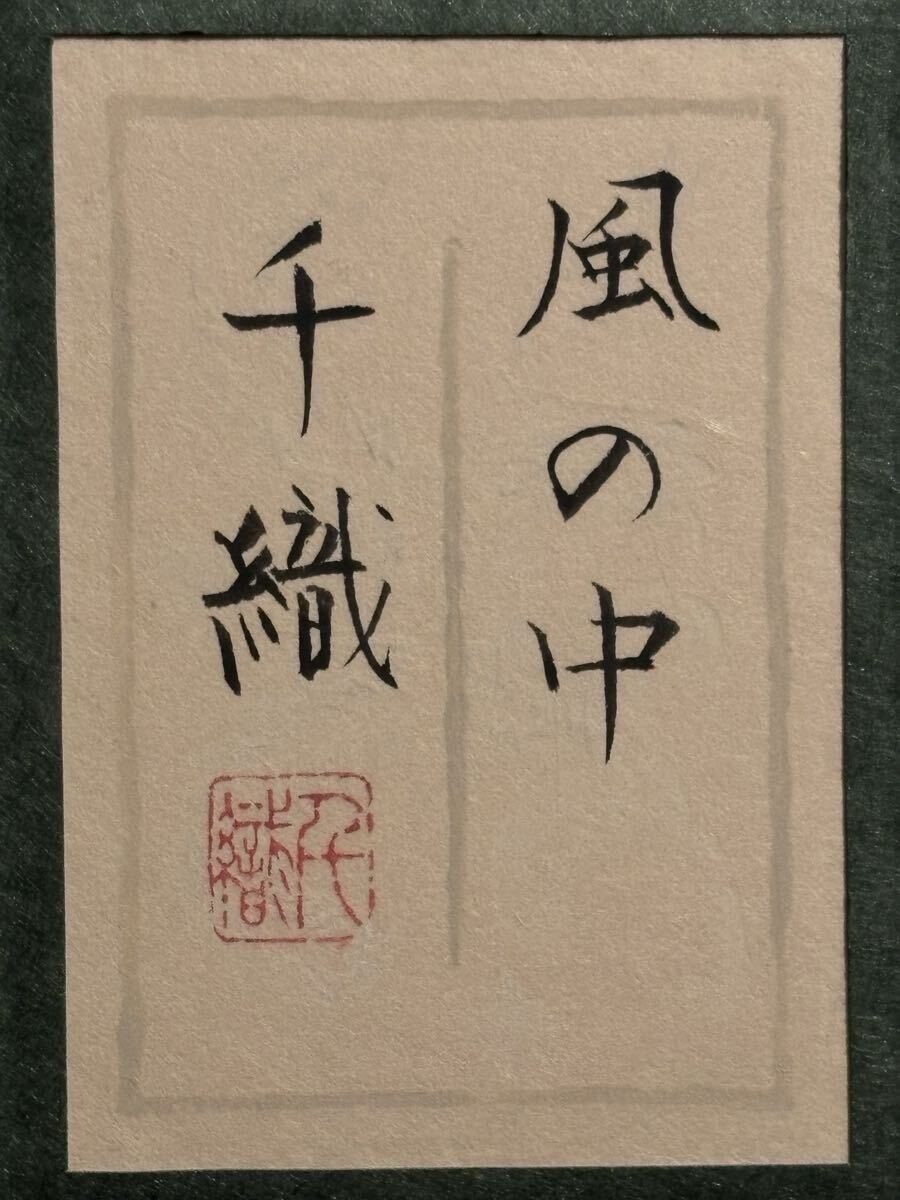 風の中
千織